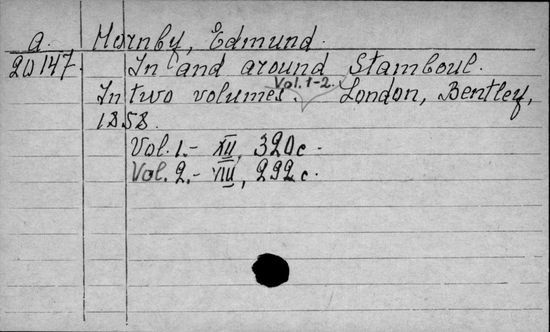 a. Hornby, Edmund.
20147. In and around Stamboul.
In two volumes. Vol. 1-2. London, Bentley,
1858.
Vol. 1.- XII, 320 c.
Vol. 2.- VIII, 292 c.